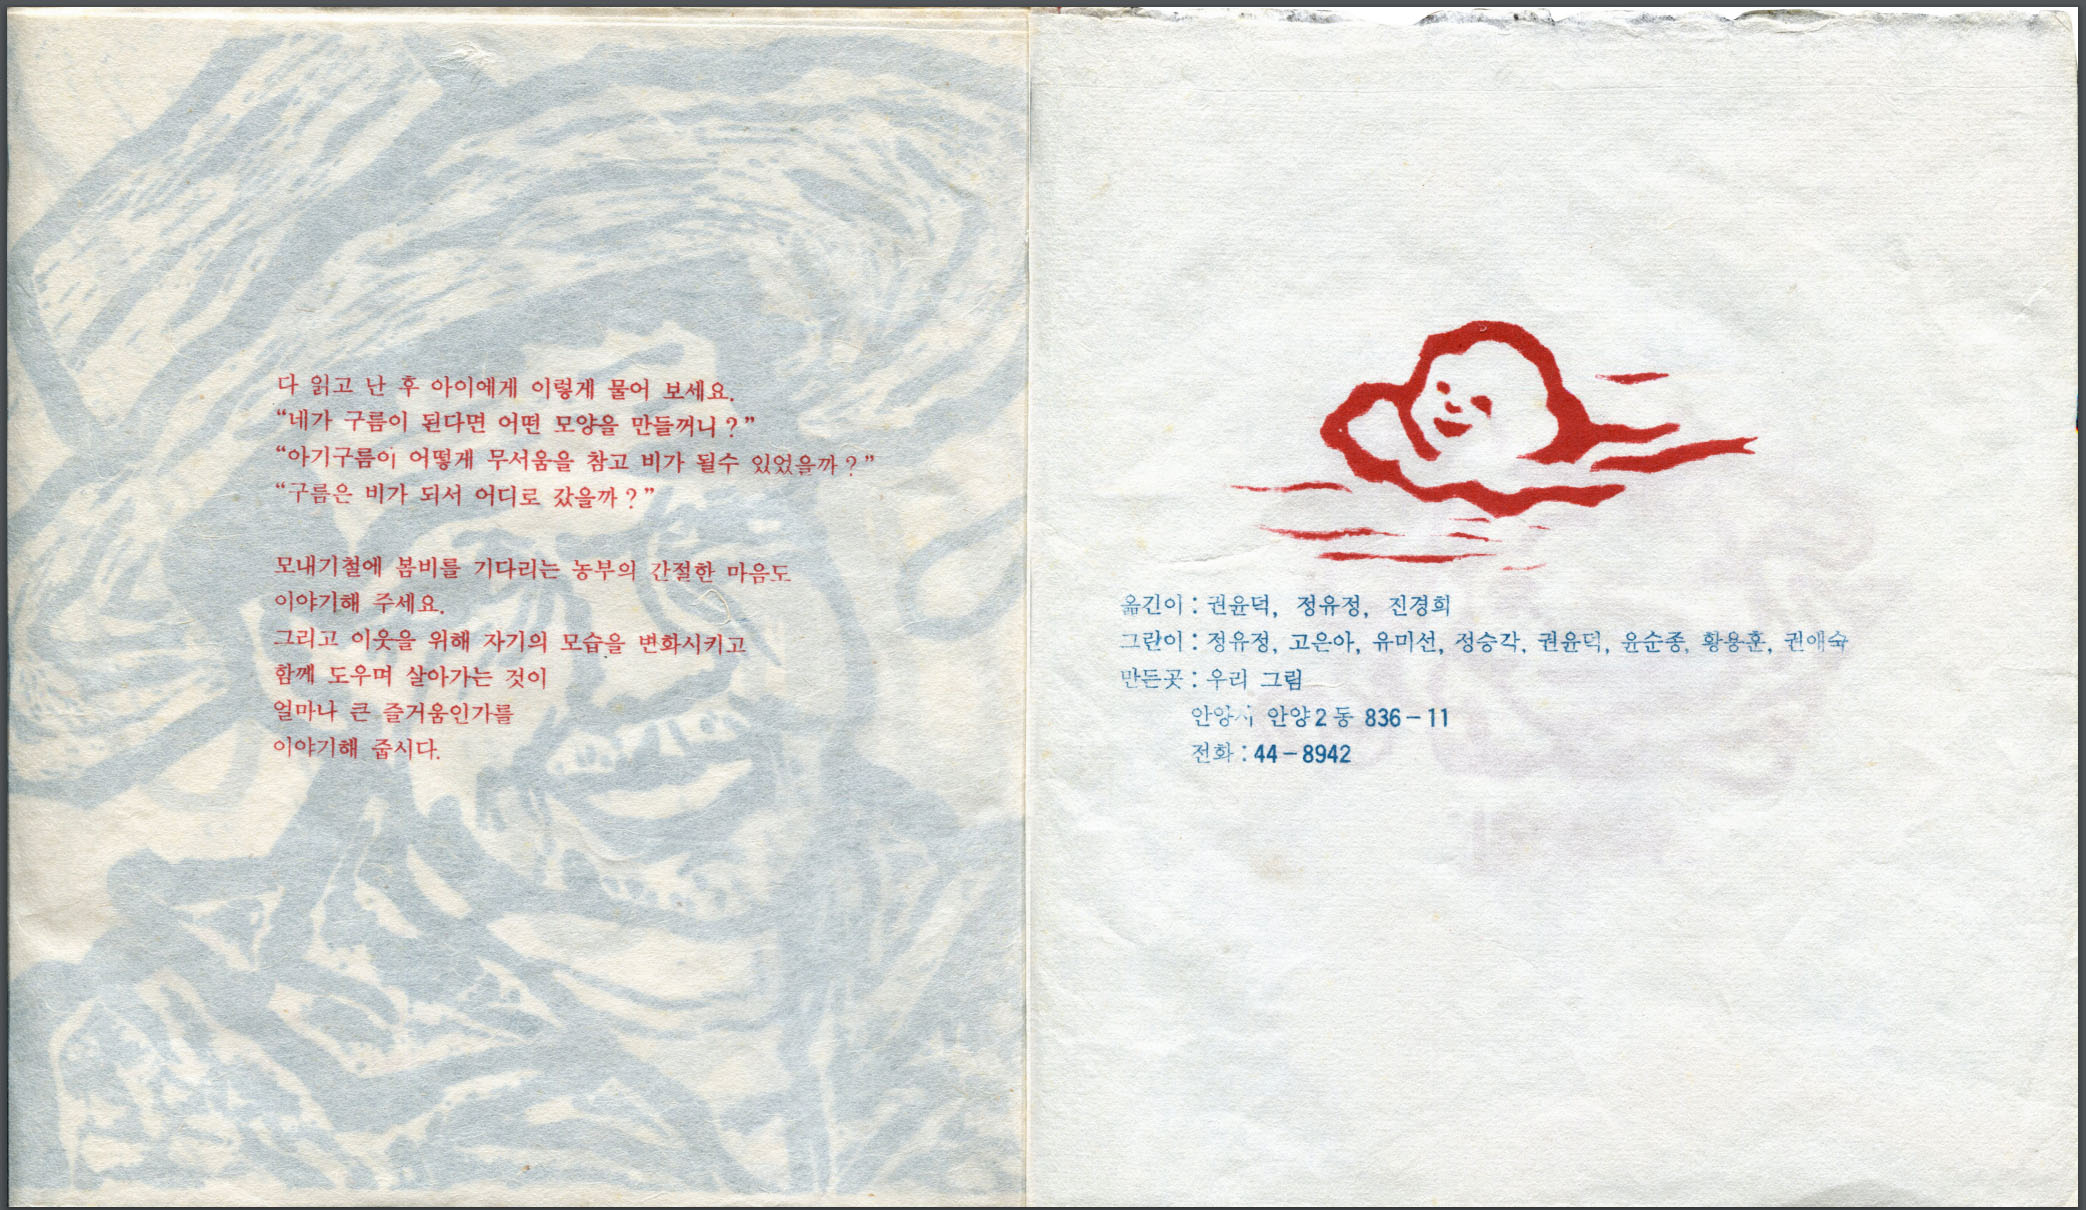 다 읽고 난 후 아이에게 이렇게 물어 보세요.
“네가 구름이 된다면 어떤 모양을 만들꺼니?”
“아기구름이 어떻게 무서움을 참고 비가 될수 있었을까?”
“구름은 비가 되서 어디로 갔을까?”
모내기철에 봄비를 기다리는 농부의 간절한 마음도
이야기해 주세요.
그리고 이웃을 위해 자기의 모습을 변화시키고
함께 도우며 살아가는 것이
얼마나 큰 즐거움인가를
이야기해 줍시다.
옮긴이 : 권윤덕, 정유정, 진경희
그린이 : 정유정, 고은아, 유미선, 정승각, 권윤덕, 윤순종, 황용훈, 권애숙
만든곳 : 우리 그림
안양시 안양2동 836-11
전화 : 44-8942